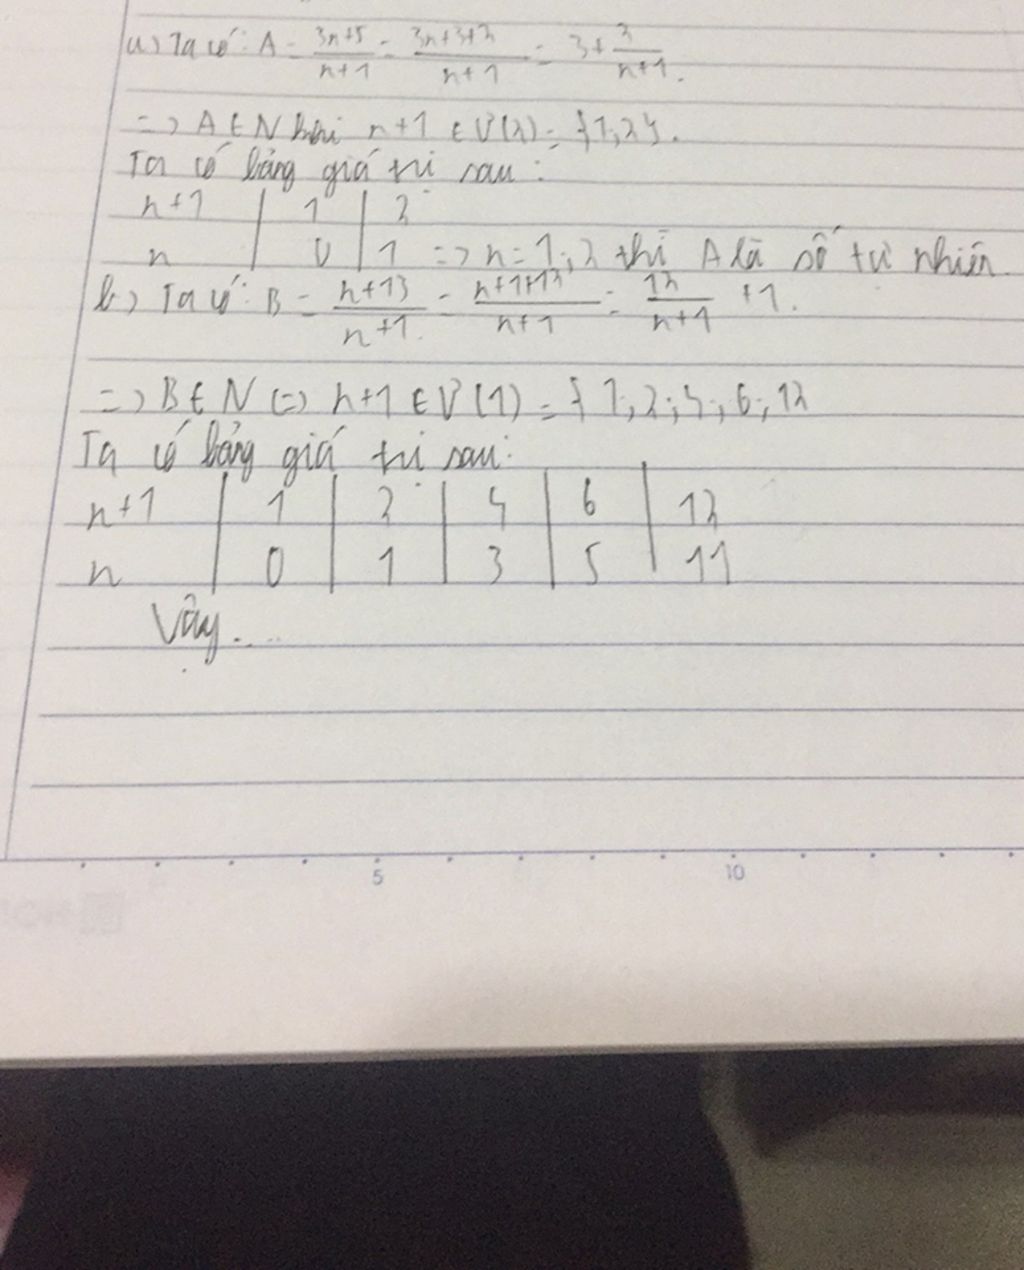 a) Ta có: A = 3n+5/n+1 = 3n+3+2/n+1 = 3+ 2/n+1.
=> A ∈ N khi n+1 ∈ Ư(2) = {1;2}.
Ta có bảng giá trị sau:
n+1 | 1 | 2
n | 0 | 1 => n = 1;2 thì A là số tự nhiên
b) Ta có: B = n+13/n+1 = n+1+13/n+1 = 12/n+1 +1.
=> B ∈ N <=> n+1 ∈ Ư(1) = {1;2;4;6;12
Ta có bảng giá trị sau:
n+1 | 1 | 2 | 4 | 6 | 12
n | 0 | 1 | 3 | 5 | 11
Vậy....
5 10